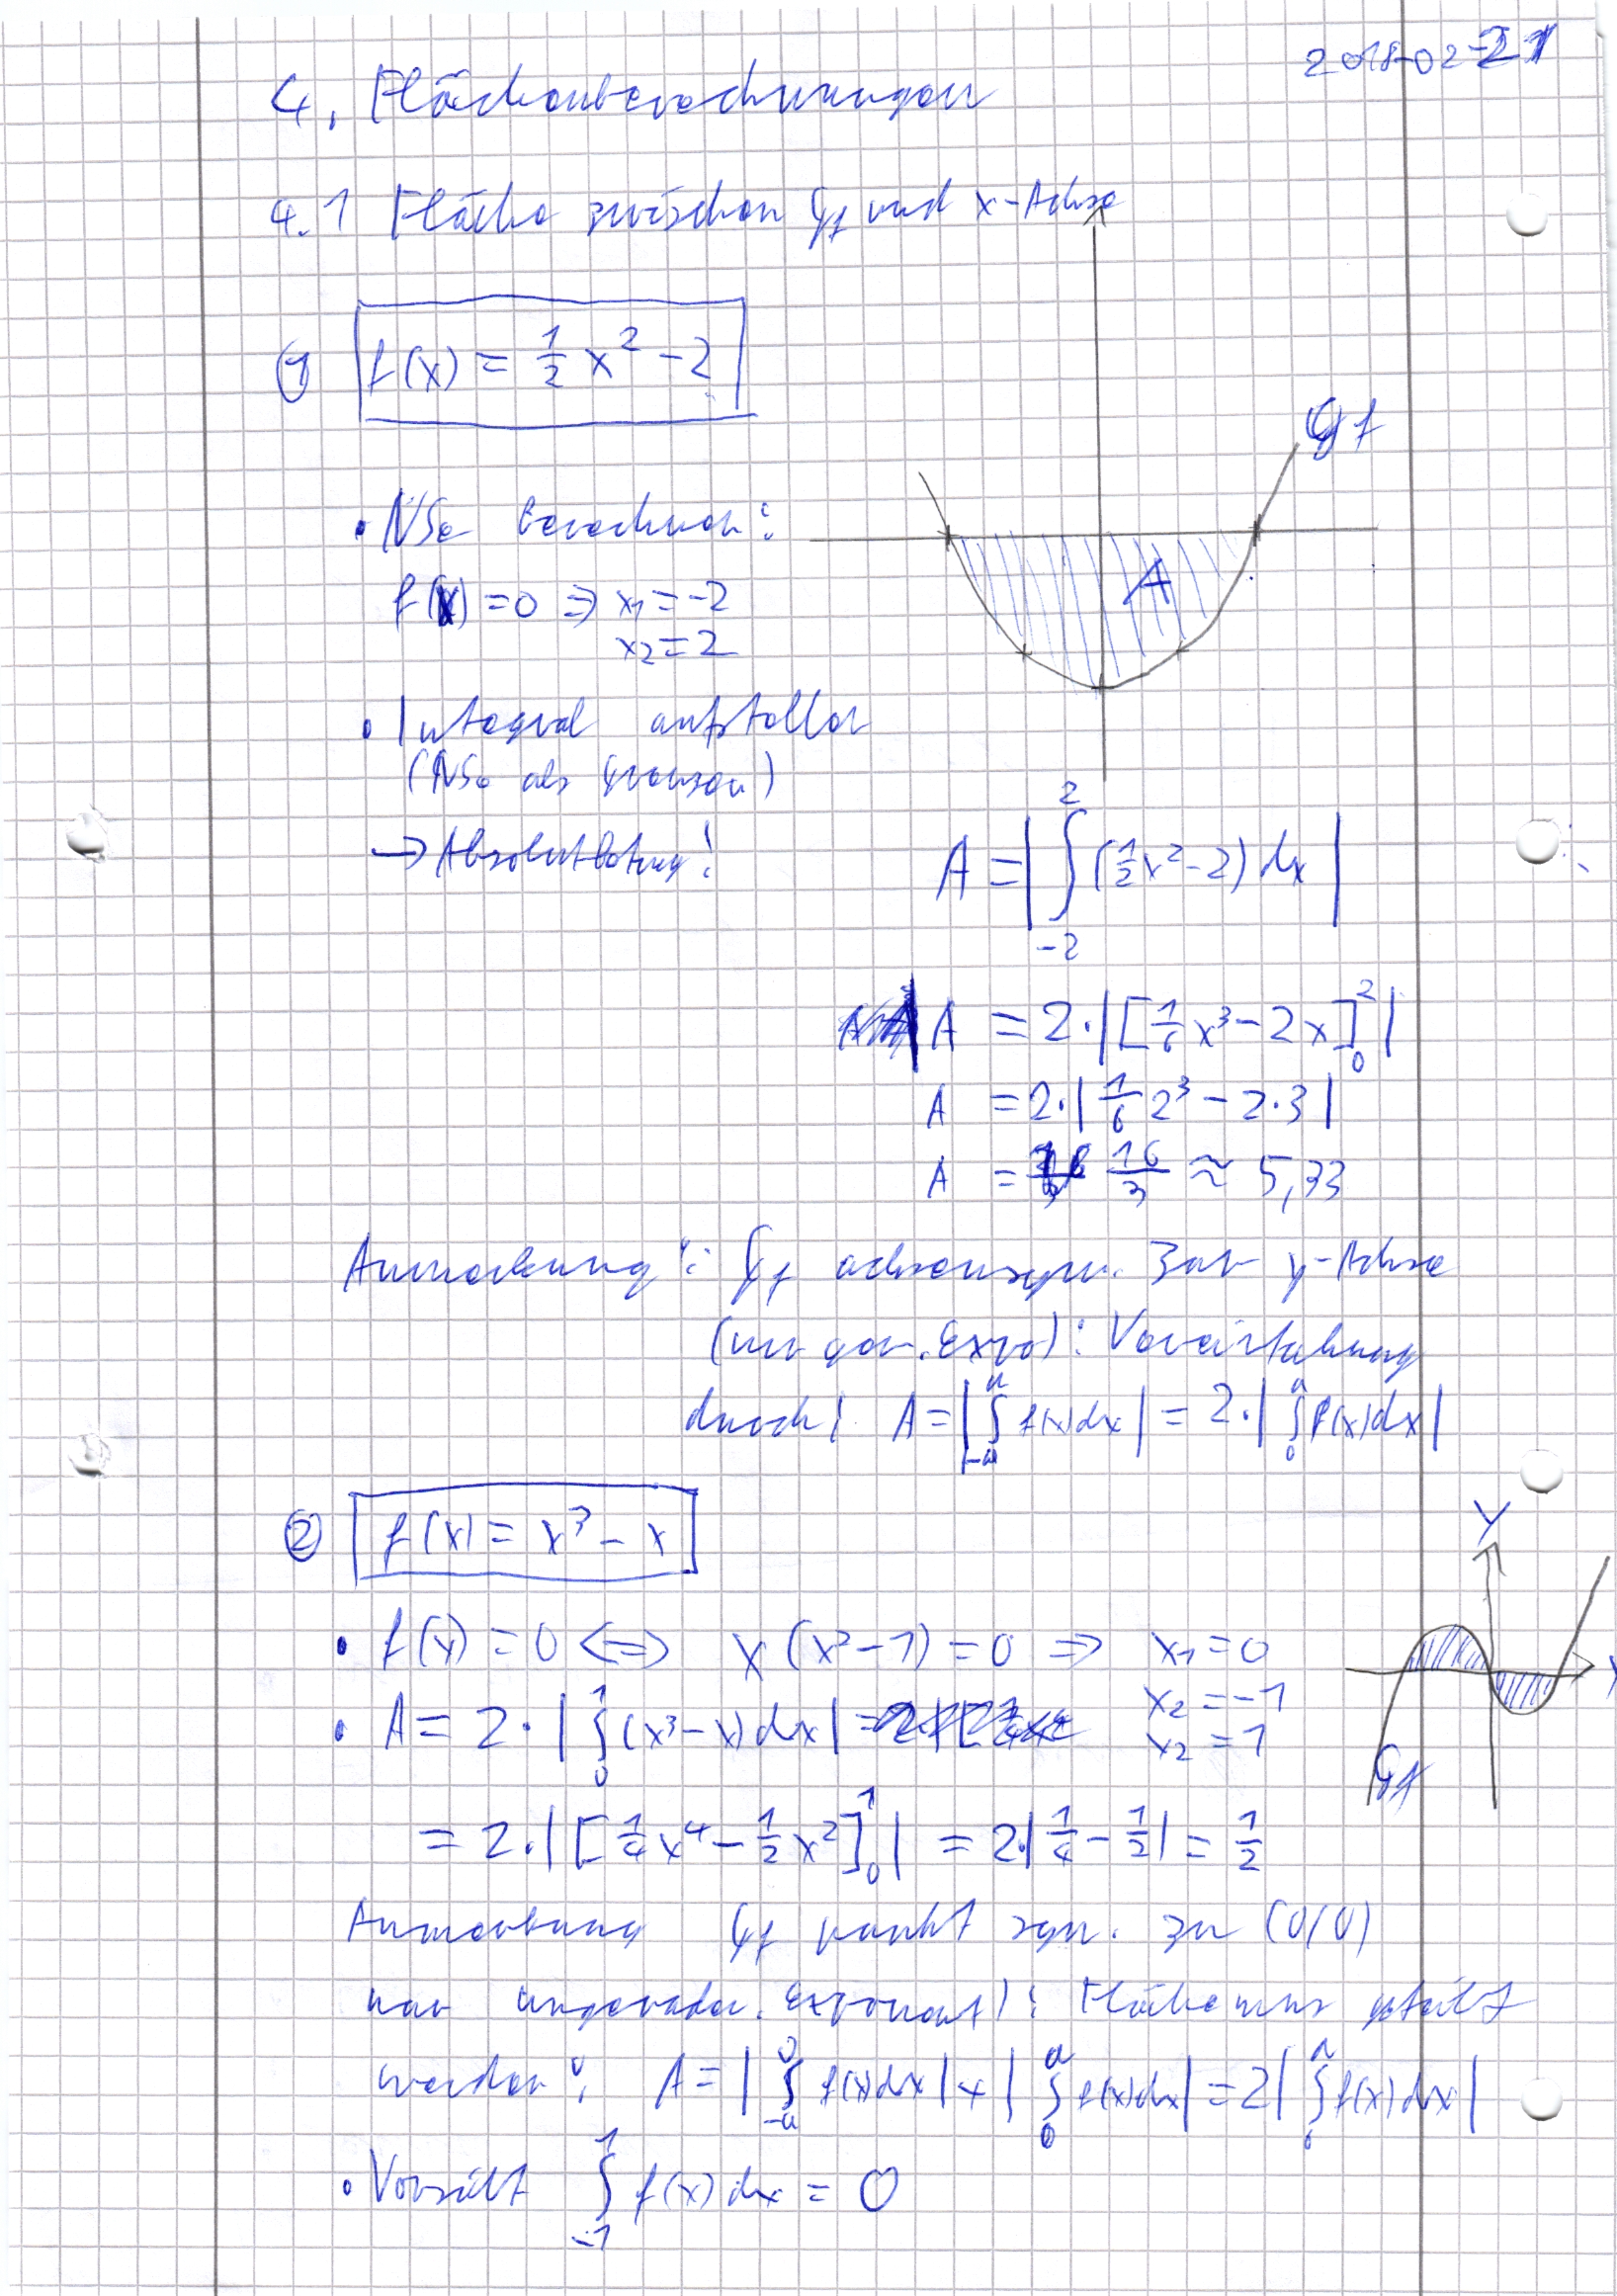 2018-02-21
4. Flächenberechnungen
4.1 Fläche zwischen Gf und x-Achse
① f(x) = 1/2 x² - 2
Gf
• NSe berechnen:
A
f(x) = 0 ⇒ x₁ = -2
x₂ = 2
• Integral aufstellen
(NSe als Grenzen)
→ Absolutbetrag!
A = | ∫_{-2}^{2} (1/2 x² - 2) dx |
A = 2 · | [1/6 x³ - 2x]_0^2 |
A = 2 · | 1/6 2³ - 2·3 |
A = 16/3 ≈ 5,33
Anmerkung: Gf achsensym. zur y-Achse
(nur ger. Expo): Vereinfachung
durch: A = | ∫_{-a}^{a} f(x) dx | = 2 · | ∫_0^a f(x) dx |
② f(x) = x³ - x
Y
X
Gf
• f(x) = 0 ⇔ x (x² - 1) = 0 ⇒ x₁ = 0
x₂ = -1
• A = 2 · | ∫_0^1 (x³ - x) dx |
x₂ = 1
= 2 · | [1/4 x⁴ - 1/2 x²]_0^1 | = 2 · | 1/4 - 1/2 | = 1/2
Anmerkung Gf punkt sym. zu (0/0)
nur ungerader. Exponent): Fläche muss geteilt
werden: A = | ∫_{-a}^0 f(x) dx | + | ∫_0^a f(x) dx | = 2 | ∫_0^a f(x) dx |
• Vorsicht ∫_{-1}^1 f(x) dx = 0